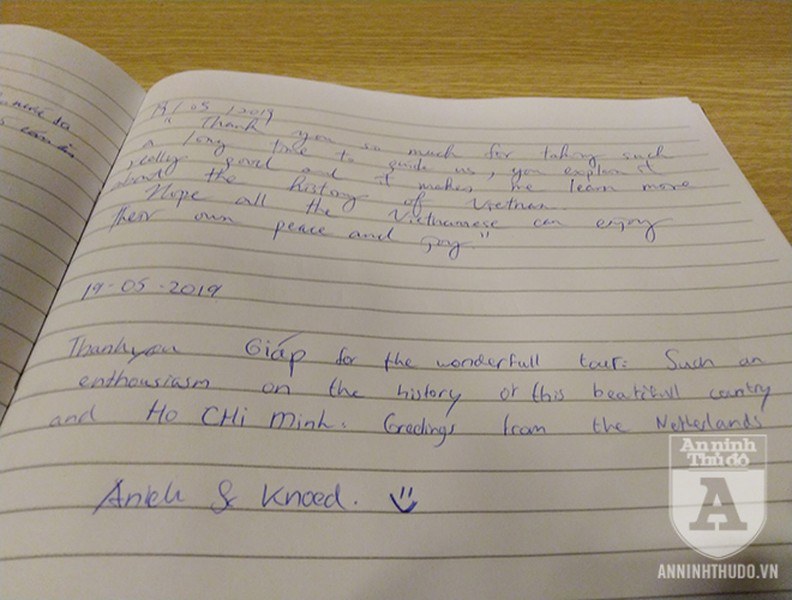 19/05/2019
"Thank you so much for taking such
a long time to guide us, you explain it
really good and it makes me learn more
about the history of Vietnam.
Hope all the Vietnamese can enjoy
their own peace and joy"
19-05-2019
Thankyou Giáp for the wonderfull tour. Such an
enthousiasm on the history of this beatifull country
and Ho CHi Minh. Greetings from the Netherlands
&
An ninh
Thủ đô
A
ANNINHTHUDO.VN